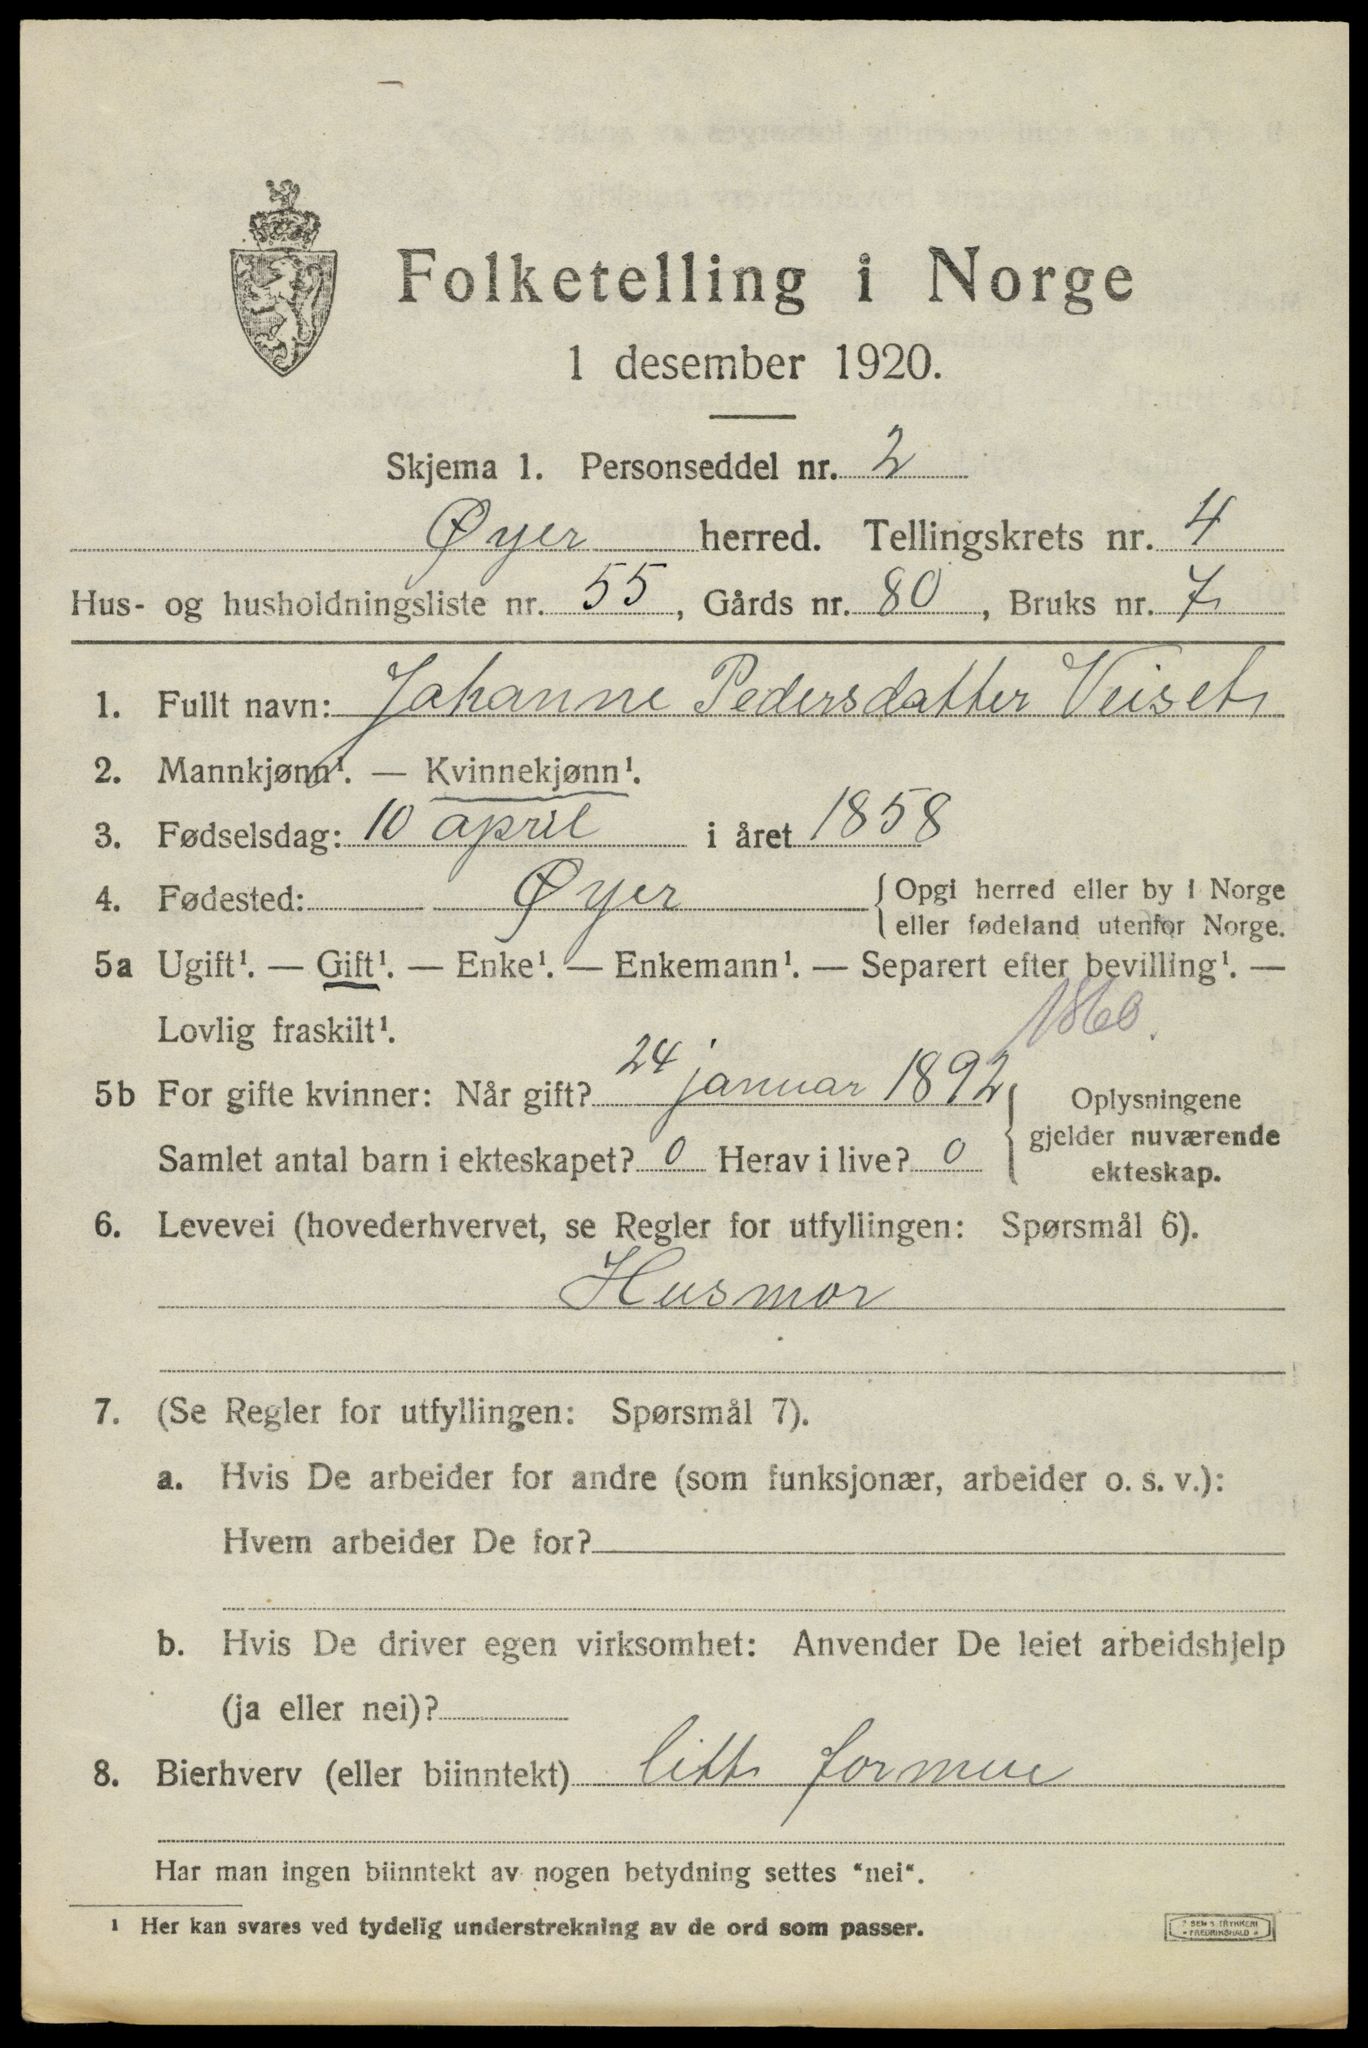 Folketelling i Norge
1 desember 1920.
Skjema 1. Personseddel nr. 2
Øyer herred. Tellingskrets nr. 4
Hus- og husholdningsliste nr. 55, Gårds nr. 80, Bruks nr. 7
1. Fullt navn: Johanne Pedersdatter Veiset
2. Mannkjønn¹. — Kvinnekjønn¹.
3. Fødselsdag: 10 april i året 1858
4. Fødested: Øyer { Opgi herred eller by i Norge
eller fødeland utenfor Norge.
5a Ugift¹. — Gift¹. — Enke¹. — Enkemann¹. — Separert efter bevilling¹. —
Lovlig fraskilt¹.
5b For gifte kvinner: Når gift? 24 januar 1892 { Oplysningene
gjelder nuværende
ekteskap.
Samlet antal barn i ekteskapet? 0 Herav i live? 0
6. Levevei (hovederhvervet, se Regler for utfyllingen: Spørsmål 6).
Husmor
7. (Se Regler for utfyllingen: Spørsmål 7).
a. Hvis De arbeider for andre (som funksjonær, arbeider o. s. v.):
Hvem arbeider De for?
b. Hvis De driver egen virksomhet: Anvender De leiet arbeidshjelp
(ja eller nei)?
8. Bierhverv (eller biinntekt) litt formue
Har man ingen biinntekt av nogen betydning settes "nei".
¹ Her kan svares ved tydelig understrekning av de ord som passer.